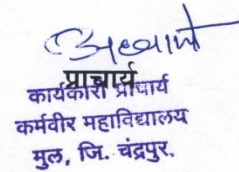 प्राचार्य
कार्यकारी प्राचार्य
कर्मवीर महाविद्यालय
मुल, जि. चंद्रपुर.